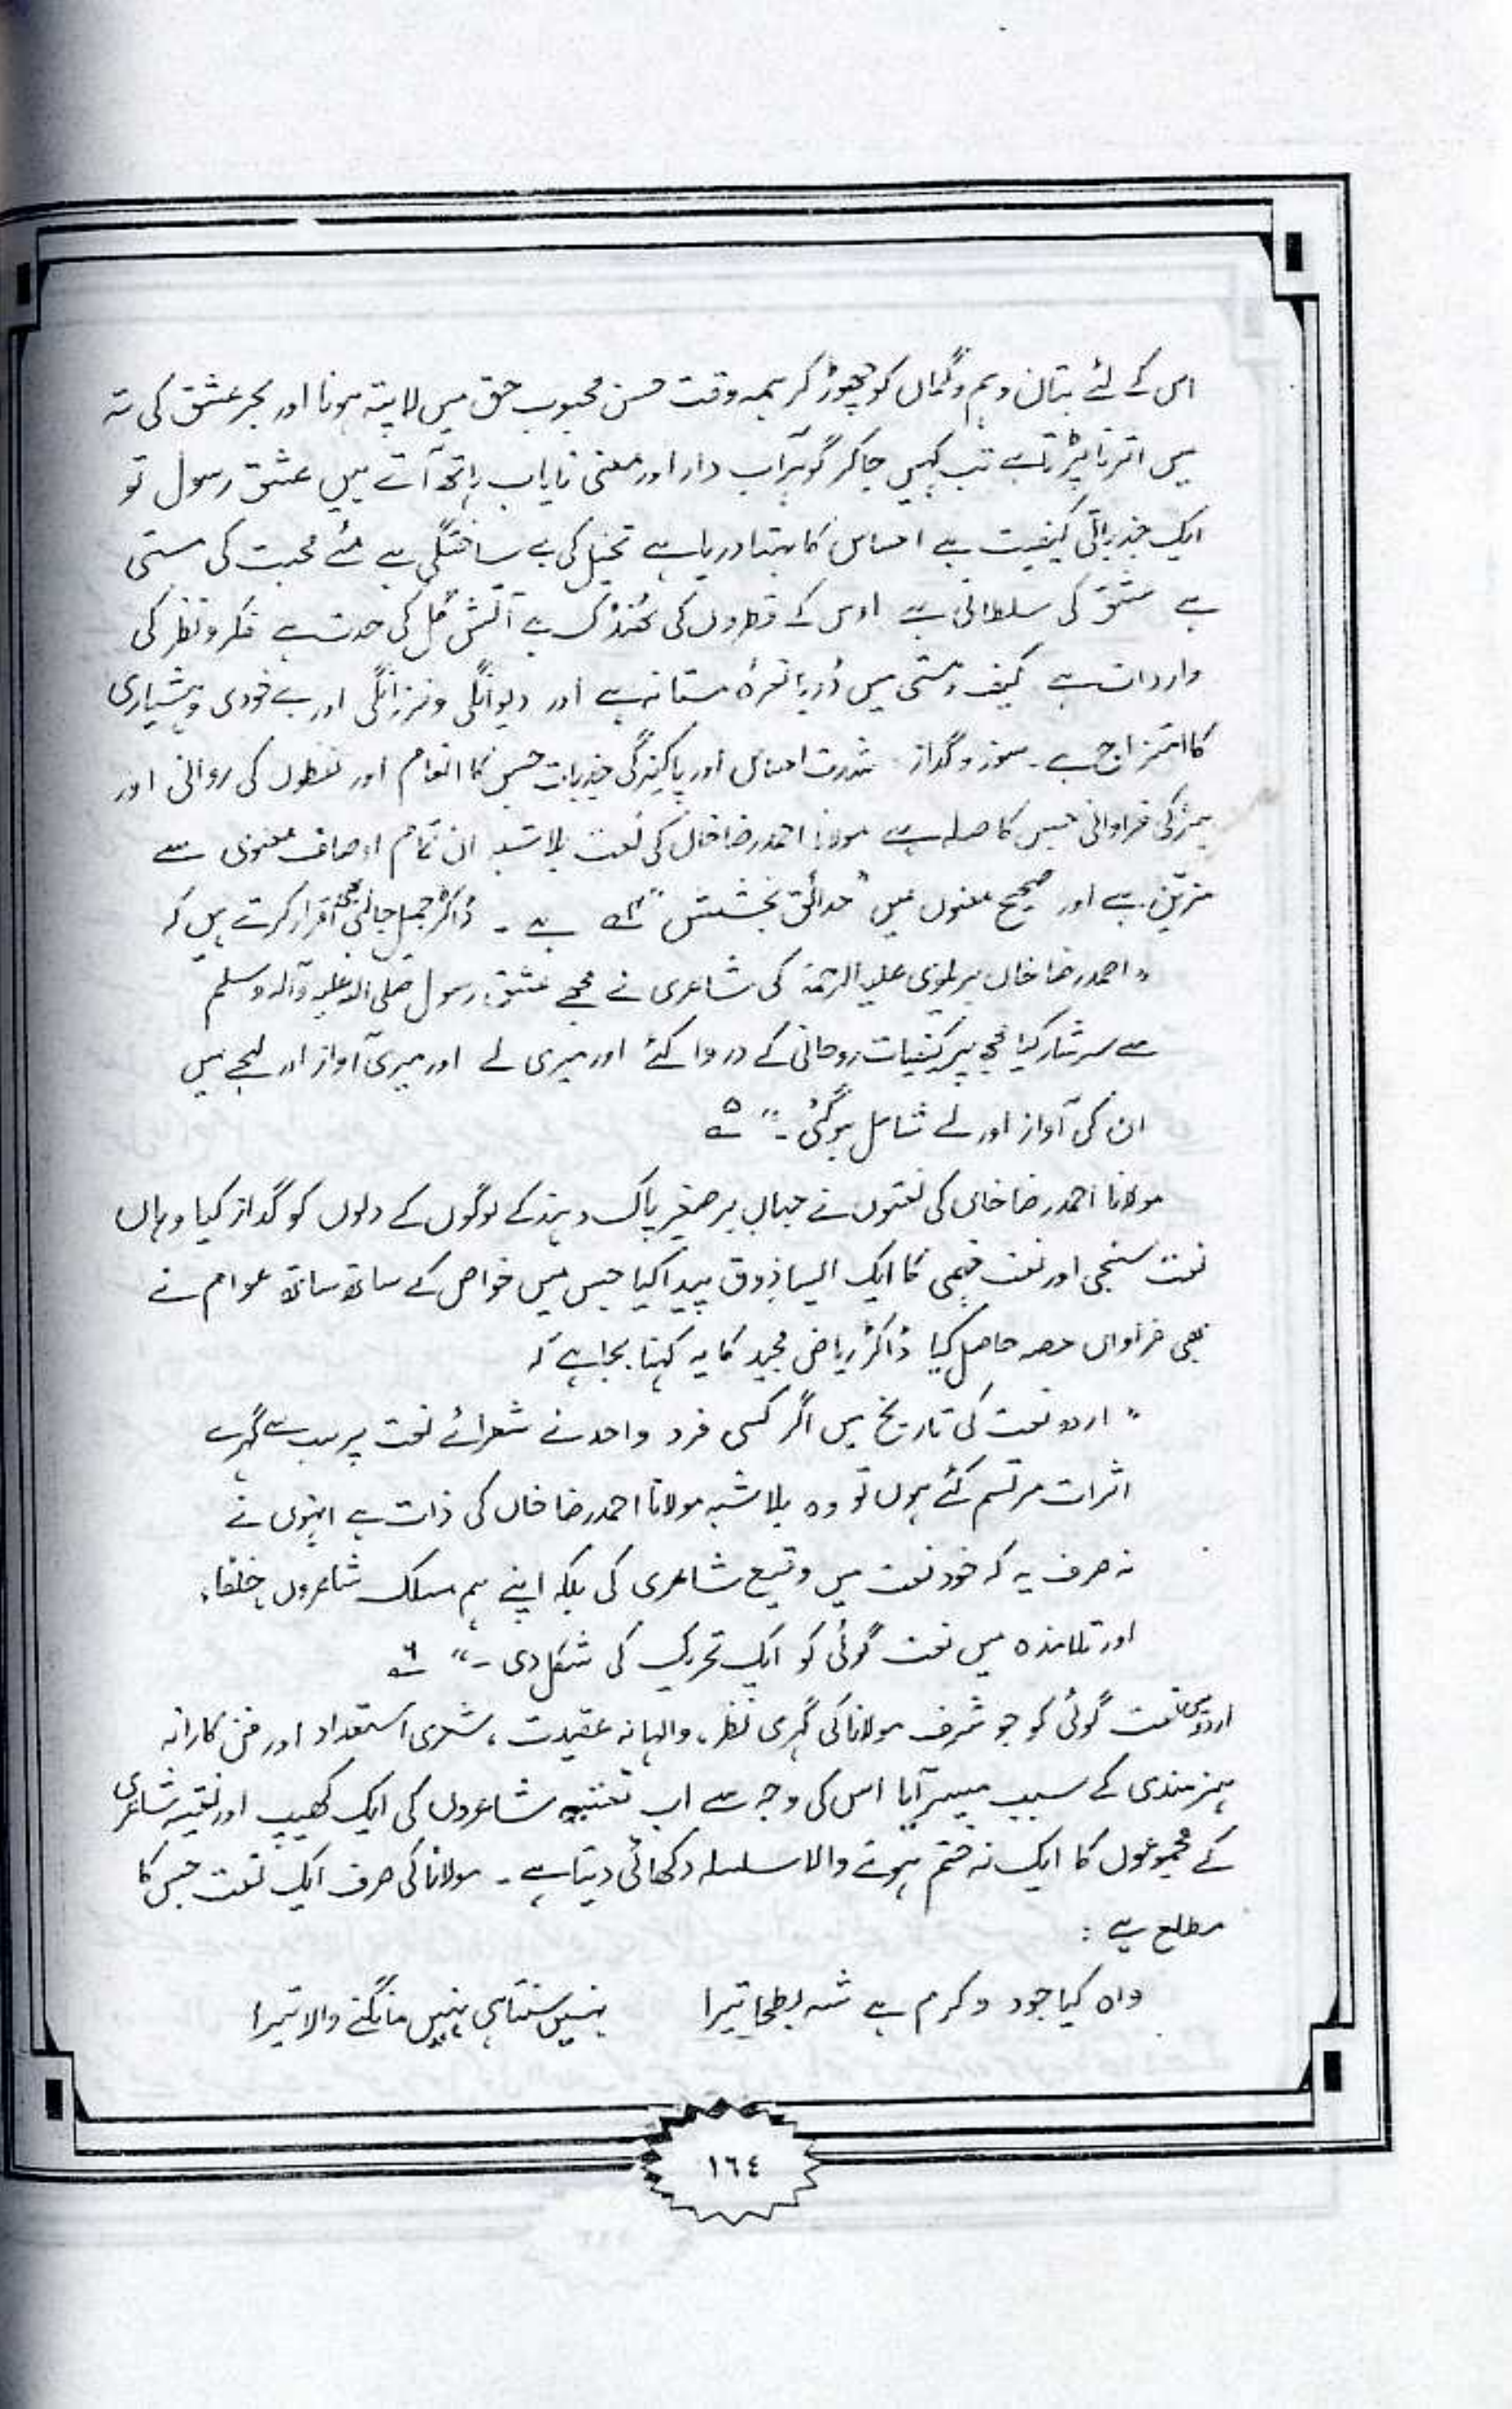 اس کے لئے بتان وہم وگماں کو چھوڑ کر ہمہ وقت حسن محبوب حق میں لاپتہ ہونا اور بحر عشق کی تہ
میں اترنا پڑتا ہے تب کہیں جاکر گوہر آب دار اور معنی نایاب ہاتھ آتے ہیں عشق رسول تو
ایک جذباتی کیفیت ہے احساس کا بہتا دریا ہے تخیل کی بے ساختگی ہے مئے محبت کی مستی
ہے عشق کی سلطانی ہے اوس کے قطروں کی ٹھنڈک ہے آتش گل کی حدت ہے فکر و نظر کی
واردات ہے کیف و مستی میں ڈوبا نعرۂ مستانہ ہے اور دیوانگی و فرزانگی اور بے خودی و ہشیاری
کا امتزاج ہے۔ سوز و گداز شدت احساس اور پاکیزگی جذبات جس کا انعام اور لفظوں کی روانی اور
ہنر کی فراوانی جس کا صلہ ہے مولانا احمد رضا خاں کی نعت بلاشبہ ان تمام اوصاف معنوی سے
مزیّن ہے اور صحیح معنوں میں "حدائق بخشش" ۴؎ ہے ۔ ڈاکٹر جمیل جالبی بھی اقرار کرتے ہیں کہ
" احمد رضا خاں بریلوی علیہ الرحمۃ کی شاعری نے مجھے عشق رسول صلی اللہ علیہ وآلہ وسلم
سے سرشار کیا مجھ پر کیفیات روحانی کے در وا کئے اور میری لے اور میری آواز اور لہجے میں
ان کی آواز اور لے شامل ہوگئی ۔" ۵؎
مولانا احمد رضا خاں کی نعتوں نے جہاں برصغیر پاک و ہند کے لوگوں کے دلوں کو گداز کیا وہاں
نعت سنجی اور نعت فہمی کا ایک ایسا ذوق پیدا کیا جس میں خواص کے ساتھ ساتھ عوام نے
بھی فراواں حصہ حاصل کیا ڈاکٹر ریاض مجید کا یہ کہنا بجا ہے کہ
" اردو نعت کی تاریخ میں اگر کسی فرد واحد نے شعرائے نعت پر سب سے گہرے
اثرات مرتسم کئے ہوں تو وہ بلاشبہ مولانا احمد رضا خاں کی ذات ہے انہوں نے
نہ صرف یہ کہ خود نعت میں وقیع شاعری کی بلکہ اپنے ہم مسلک شاعروں، خلفاء
اور تلامذہ میں نعت گوئی کو ایک تحریک کی شکل دی ۔" ۶؎
اردو میں نعت گوئی کو جو شرف مولانا کی گہری نظر، والہانہ عقیدت، شعری استعداد اور فن کارانہ
ہنرمندی کے سبب میسر آیا اس کی وجہ سے اب نعتیہ شاعروں کی ایک کھیپ اور نعتیہ شاعری
کے مجموعوں کا ایک نہ ختم ہونے والا سلسلہ دکھائی دیتا ہے ۔ مولانا کی صرف ایک نعت جس کا
مطلع ہے :
واہ کیا جود و کرم ہے شہ بطحا تیرا نہیں سنتا ہی نہیں مانگنے والا تیرا
١٦٤